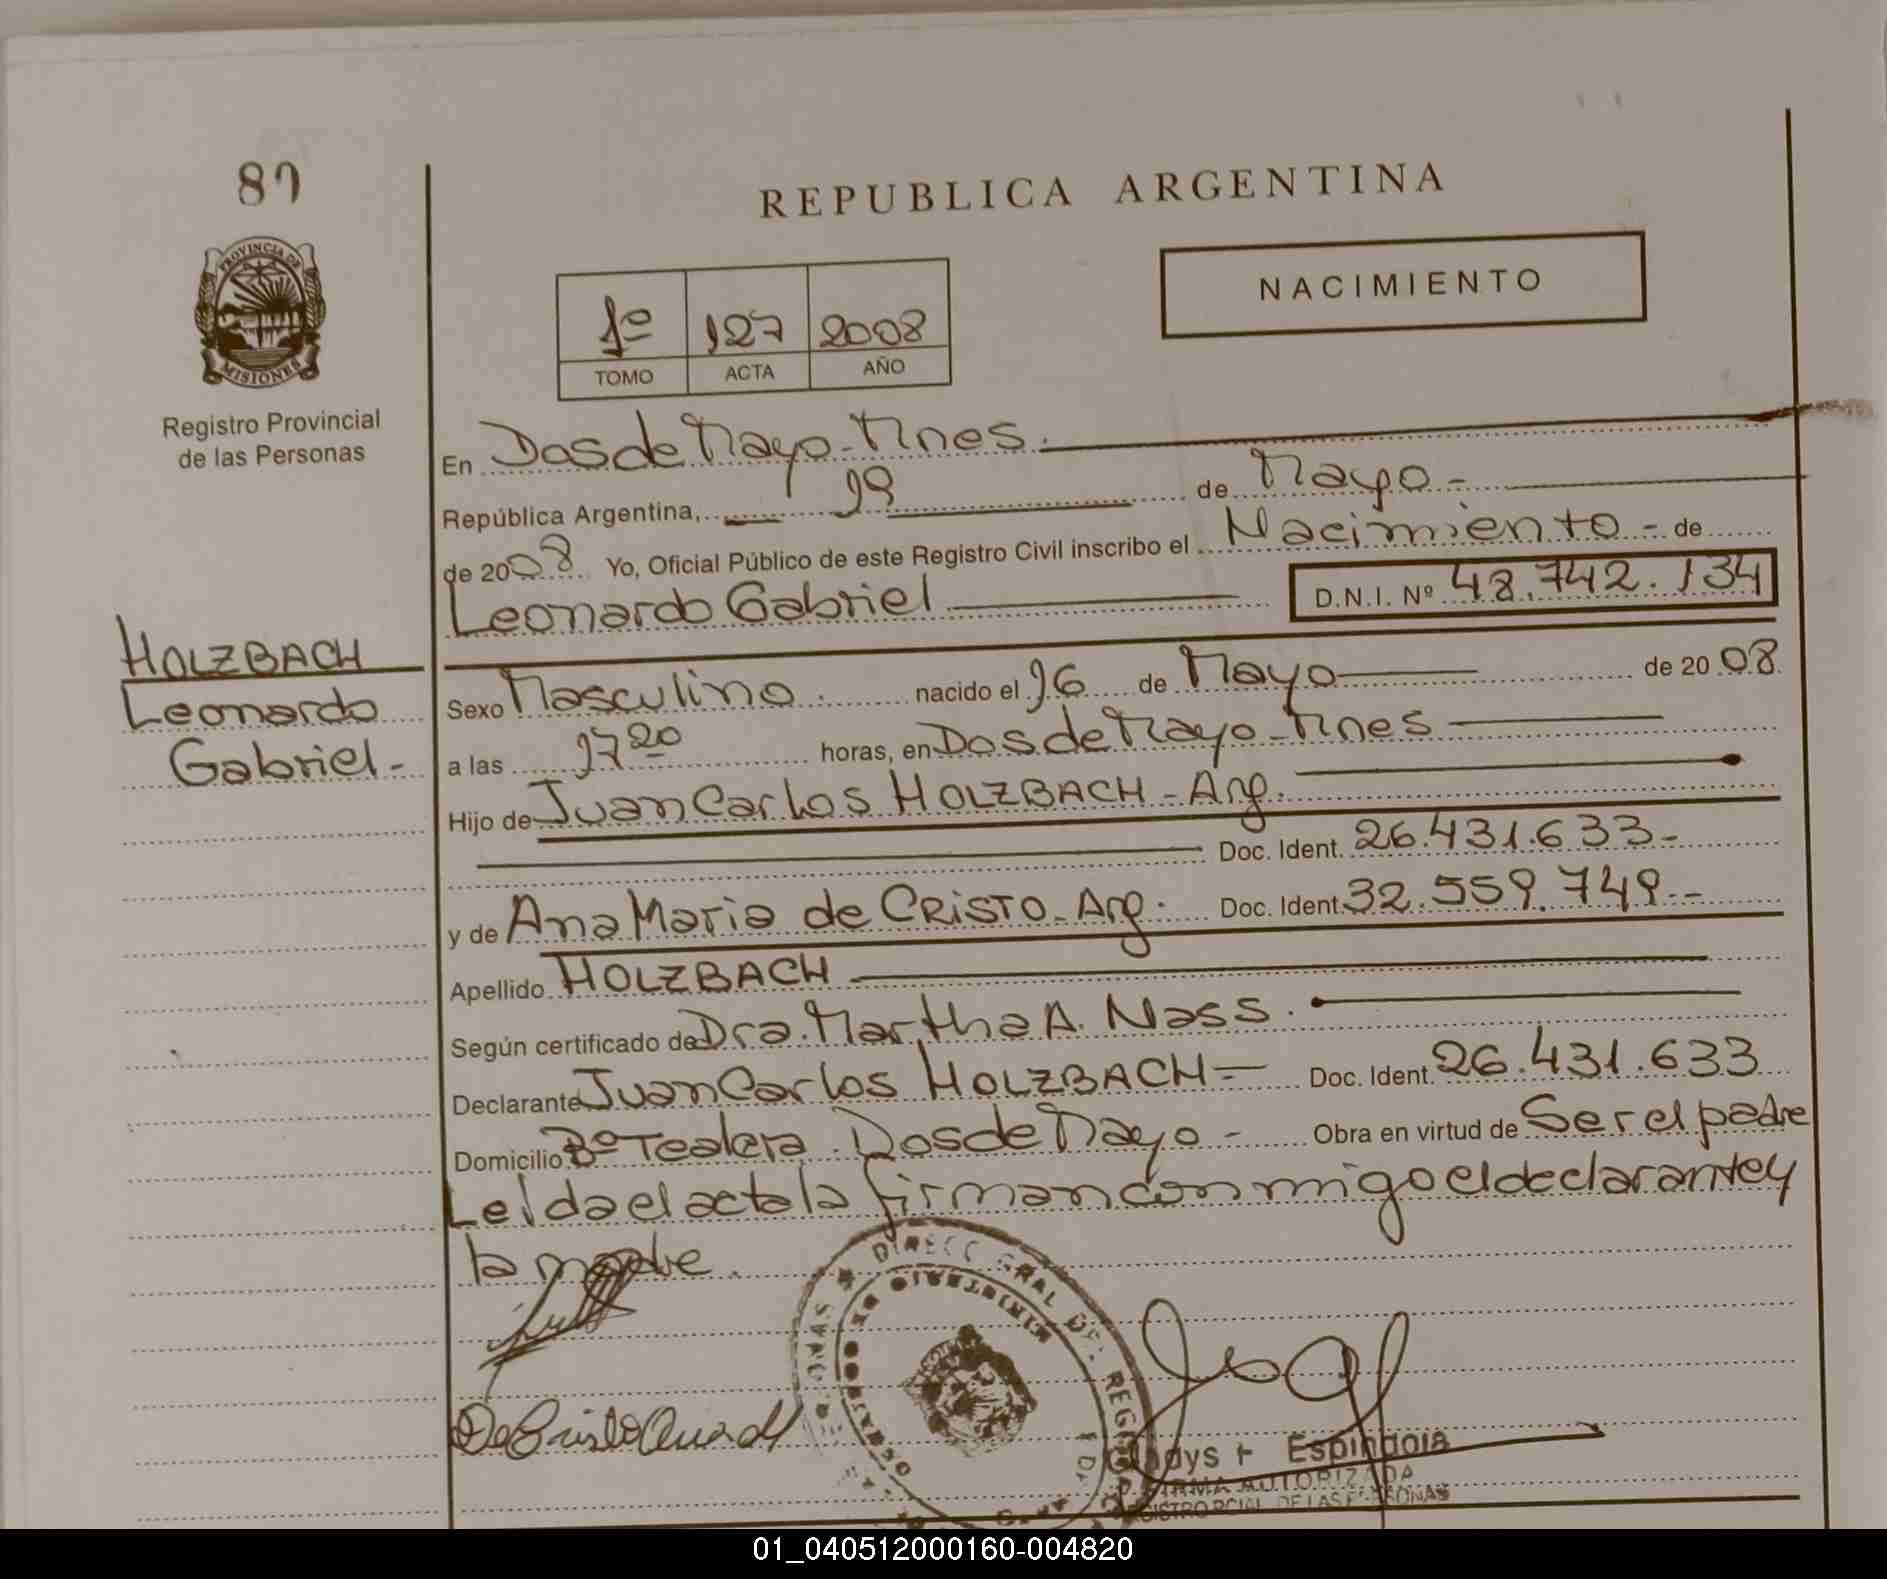 89
REPUBLICA ARGENTINA
PROVINCIA DE
MISIONES
Registro Provincial
de las Personas
NACIMIENTO
1º 127 2008
TOMO ACTA AÑO
En Dos de Mayo - Mnes.
República Argentina, 19 de Mayo -
de 2008 Yo, Oficial Público de este Registro Civil inscribo el Nacimiento - de
Leonardo Gabriel D.N.I. Nº 48.742.134
HOLZBACH
Leonardo
Gabriel -
Sexo Masculino. nacido el 16 de Mayo de 2008
a las 17 20 horas, en Dos de Mayo - Mnes
Hijo de Juan Carlos HOLZBACH - Arg.
Doc. Ident. 26.431.633-
y de Ana Maria de CRISTO - Arg. Doc. Ident. 32.559.749--
Apellido HOLZBACH
Según certificado de Dra. Martha A. Nass.
Declarante Juan Carlos HOLZBACH - Doc. Ident. 26.431.633
Domicilio Bº Tealera. Dos de Mayo - Obra en virtud de Ser el padre
Leída el acta la firman conmigo el declarante y
la madre.
De Cristo Ana M
MINISTERIO DE GOBIERNO
Espindola
FIRMA AUTORIZADA
REGISTRO PCIAL. DE LAS PERSONAS
01_040512000160-004820